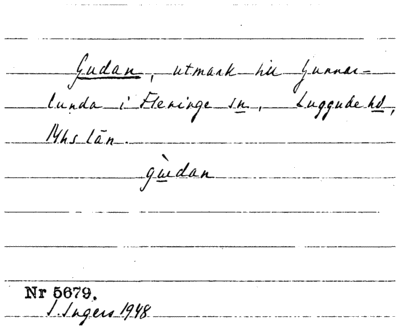 Gudan, utmark till Gunnar-
lunda i Fleninge sn, Luggude hd,
Mhs län.
gùdan
Nr 5679.
I. Ingers 1948